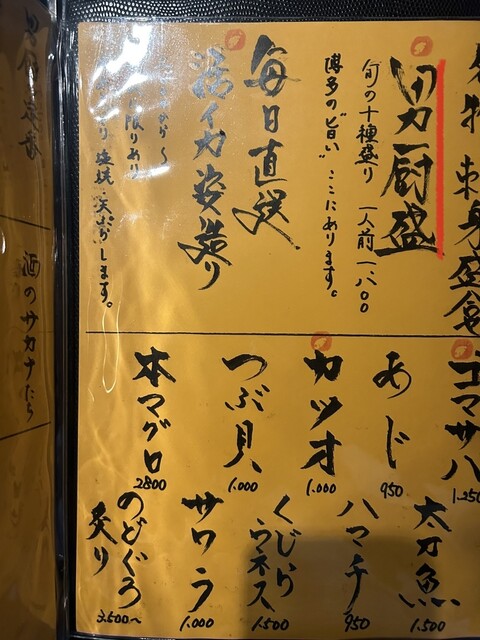 名物 刺身盛合
男厨盛
旬の十種盛り 一人前 一、八〇〇
博多の"旨い"ここにあります。
毎日直送
活イカ姿造り
限りあり
塩焼・天ぷらします。
ゴマサバ
1.250
あじ
950
カツオ
1.000
つぶ貝
1.000
本マグロ
2800
太刀魚
1.500
ハマチ
950
くじら
ウネス
1.500
サワラ
1.000
のどぐろ
炙り
2.500〜
酒のサカナたち